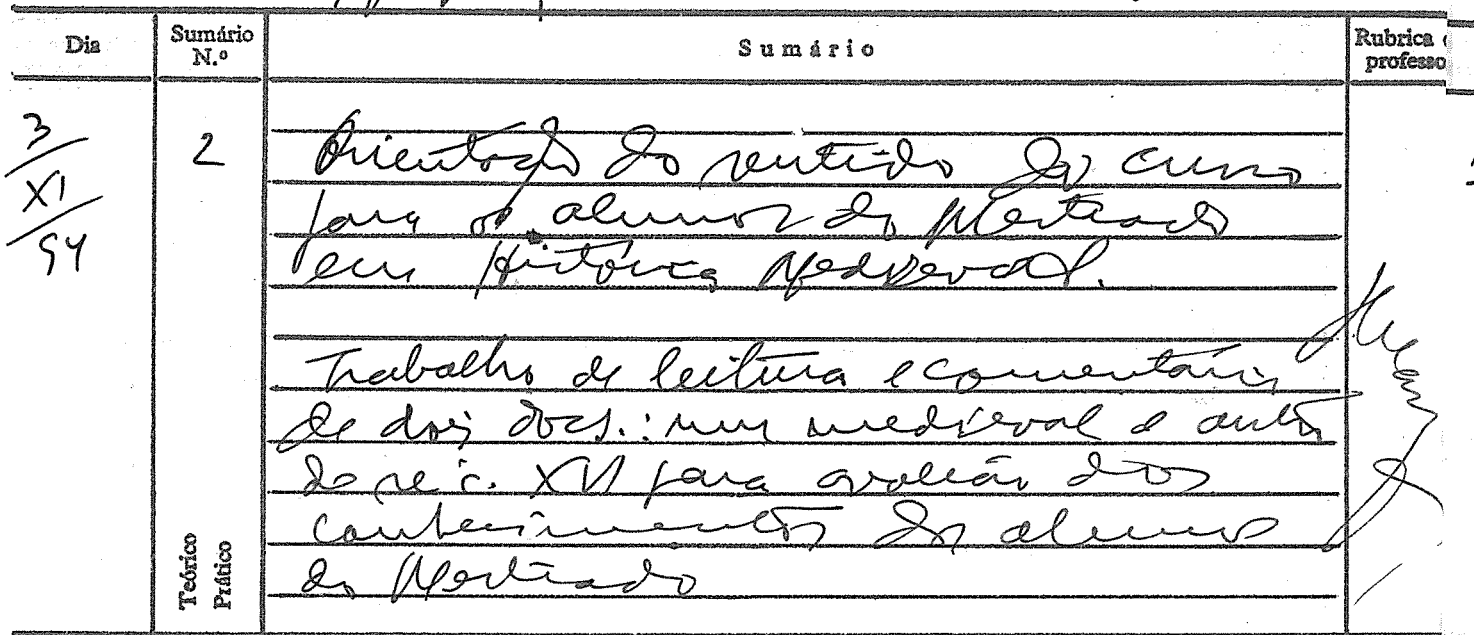 Dia
Sumário N.º
Sumário
Rubrica professo
3/XI/94
2
Orientação do sentido do curso
para os alunos do Mestrado
em História Medieval.
Trabalho de leitura e comentário
de dois docs.: um medieval e outro
do séc. XVI para avaliação dos
conhecimentos dos alunos
do Mestrado
Teórico
Prático